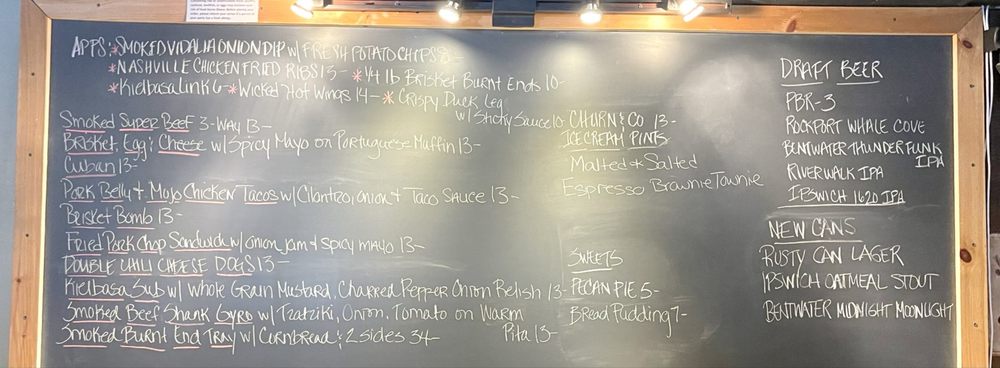 APPS: *SMOKED VIDALIA ONION DIP w/ FRESH POTATO CHIPS 8-
*NASHVILLE CHICKEN FRIED RIBS 13- *1/4 lb Brisket Burnt Ends 10-
*Kielbasa Link 6- *Wicked Hot Wings 14- *Crispy Duck Leg
w/ Sticky Sauce 10-
Smoked Super Beef 3-WAY 13-
Brisket, Egg & Cheese w/ Spicy Mayo on Portuguese Muffin 13-
Cuban 13-
Pork Belly & Mojo Chicken Tacos w/ Cilantro, onion & Taco Sauce 13-
Brisket Bomb 13-
Fried Pork Chop Sandwich w/ onion jam & spicy mayo 13-
DOUBLE CHILI CHEESE DOGS 13-
Kielbasa Sub w/ Whole Grain Mustard, Charred Pepper Onion Relish 13-
Smoked Beef Shank Gyro w/ Tzatziki, Onion, Tomato on Warm
Pita 13-
Smoked Burnt End Tray w/ Cornbread & 2 sides 34-
CHURN & CO 13-
ICE CREAM PINTS
Malted & Salted
Espresso Brownie Townie
SWEETS
PECAN PIE 5-
Bread Pudding 7-
DRAFT BEER
PBR-3
ROCKPORT WHALE COVE
BENTWATER THUNDER FUNK
IPA
RIVERWALK IPA
IPSWICH 1620 IPA
NEW CANS
RUSTY CAN LAGER
IPSWICH OATMEAL STOUT
BENTWATER MIDNIGHT MOONLIGHT